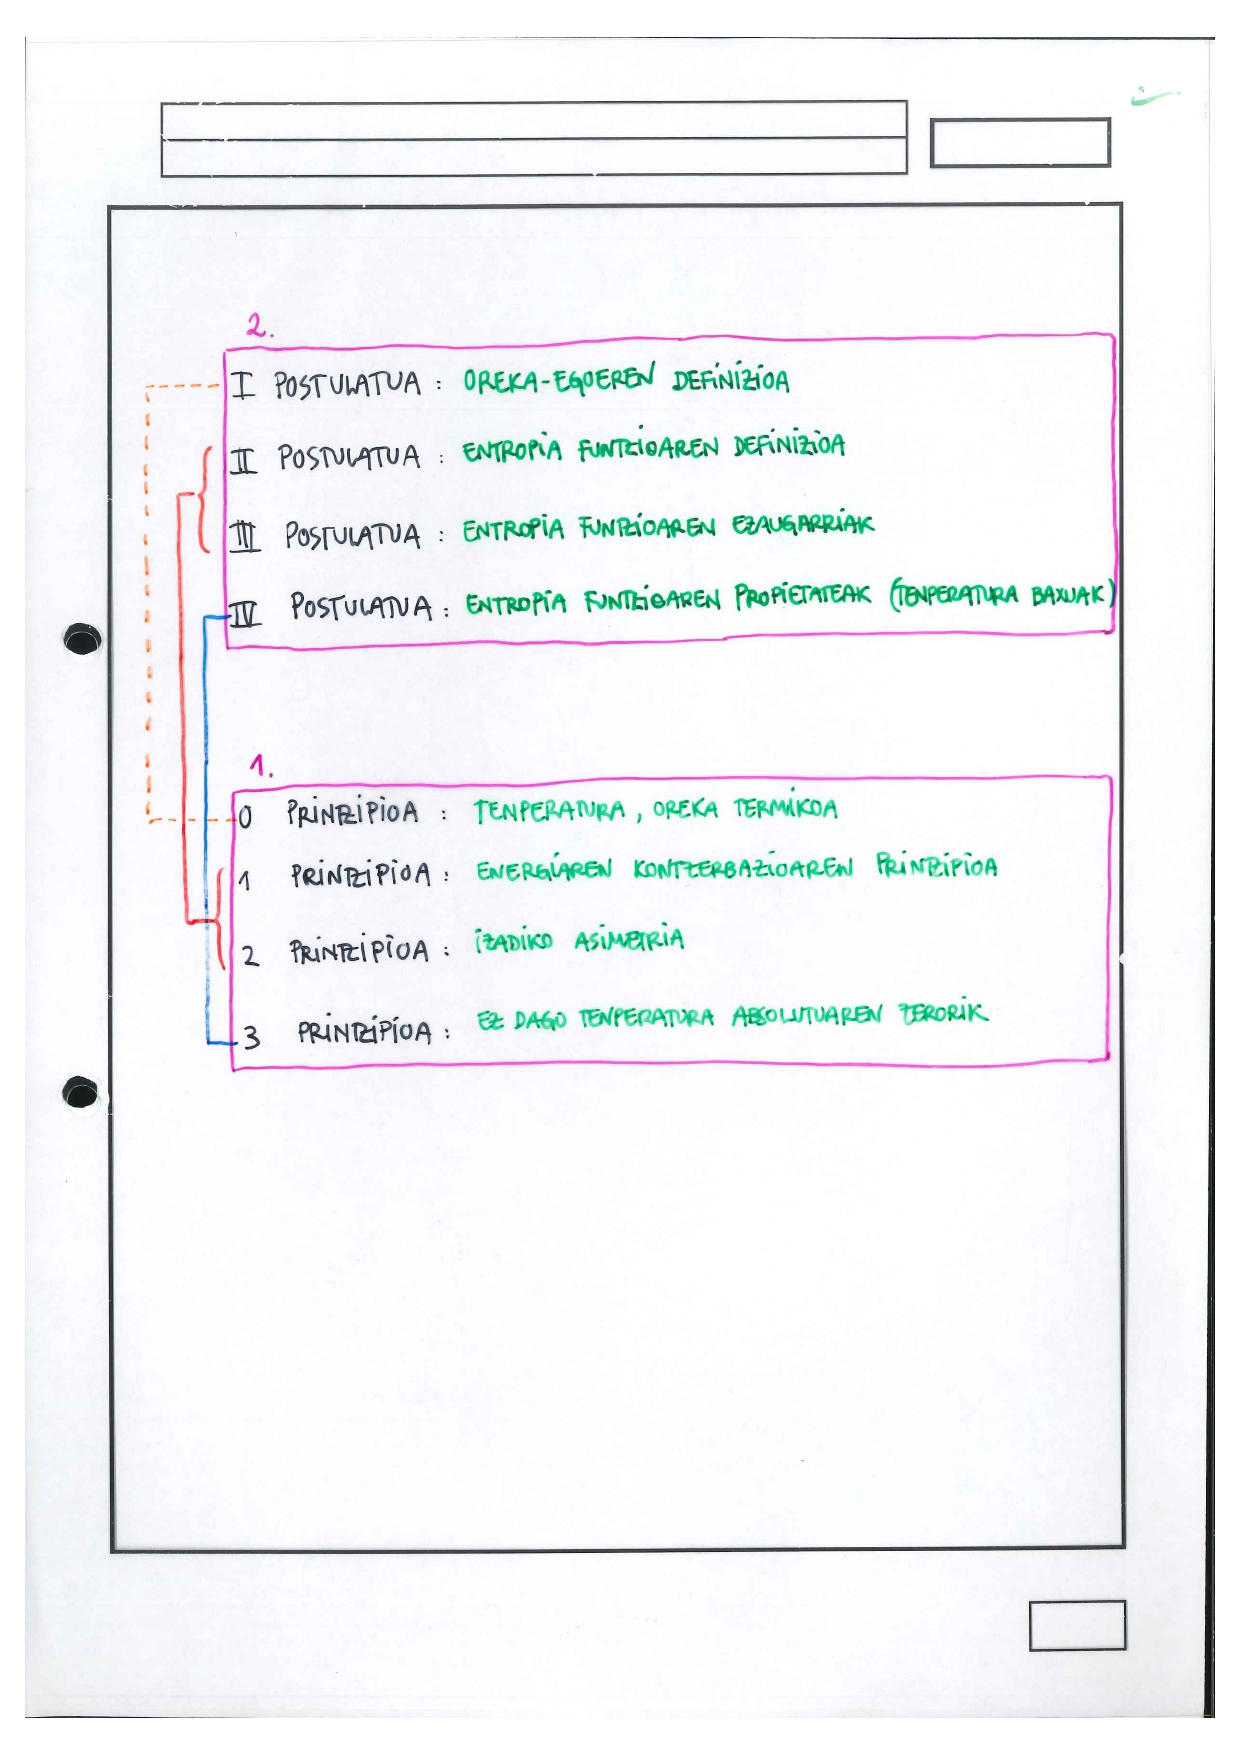 2.
I POSTULATUA : OREKA-EGOEREN DEFINIZIOA
II POSTULATUA : ENTROPIA FUNTZIOAREN DEFINIZIOA
III POSTULATUA : ENTROPIA FUNTZIOAREN EZAUGARRIAK
IV POSTULATUA : ENTROPIA FUNTZIOAREN PROPIETATEAK (TENPERATURA BAXUAK)
1.
0 PRINTZIPIOA : TENPERATURA, OREKA TERMIKOA
1 PRINTZIPIOA : ENERGIAREN KONTZERBAZIOAREN PRINTZIPIOA
2 PRINTZIPIOA : IZADIKO ASIMETRIA
3 PRINTZIPIOA : EZ DAGO TENPERATURA ABSOLUTUAREN ZERORIK